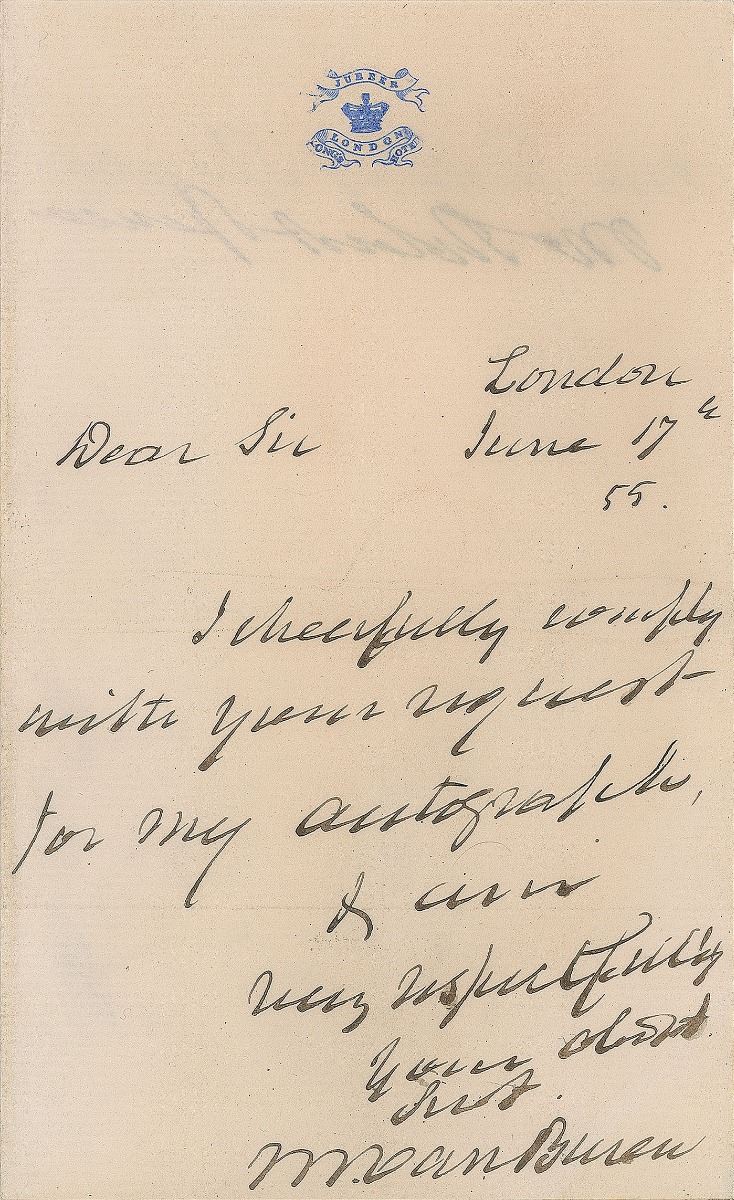 JUBBER
LONDON
LONG'S HOTEL
London
Dear Sir June 17th
55.
I cheerfully comply
with your request
for my autograph,
& am
very respectfully
Your obdt
Svt.
M. Van Buren